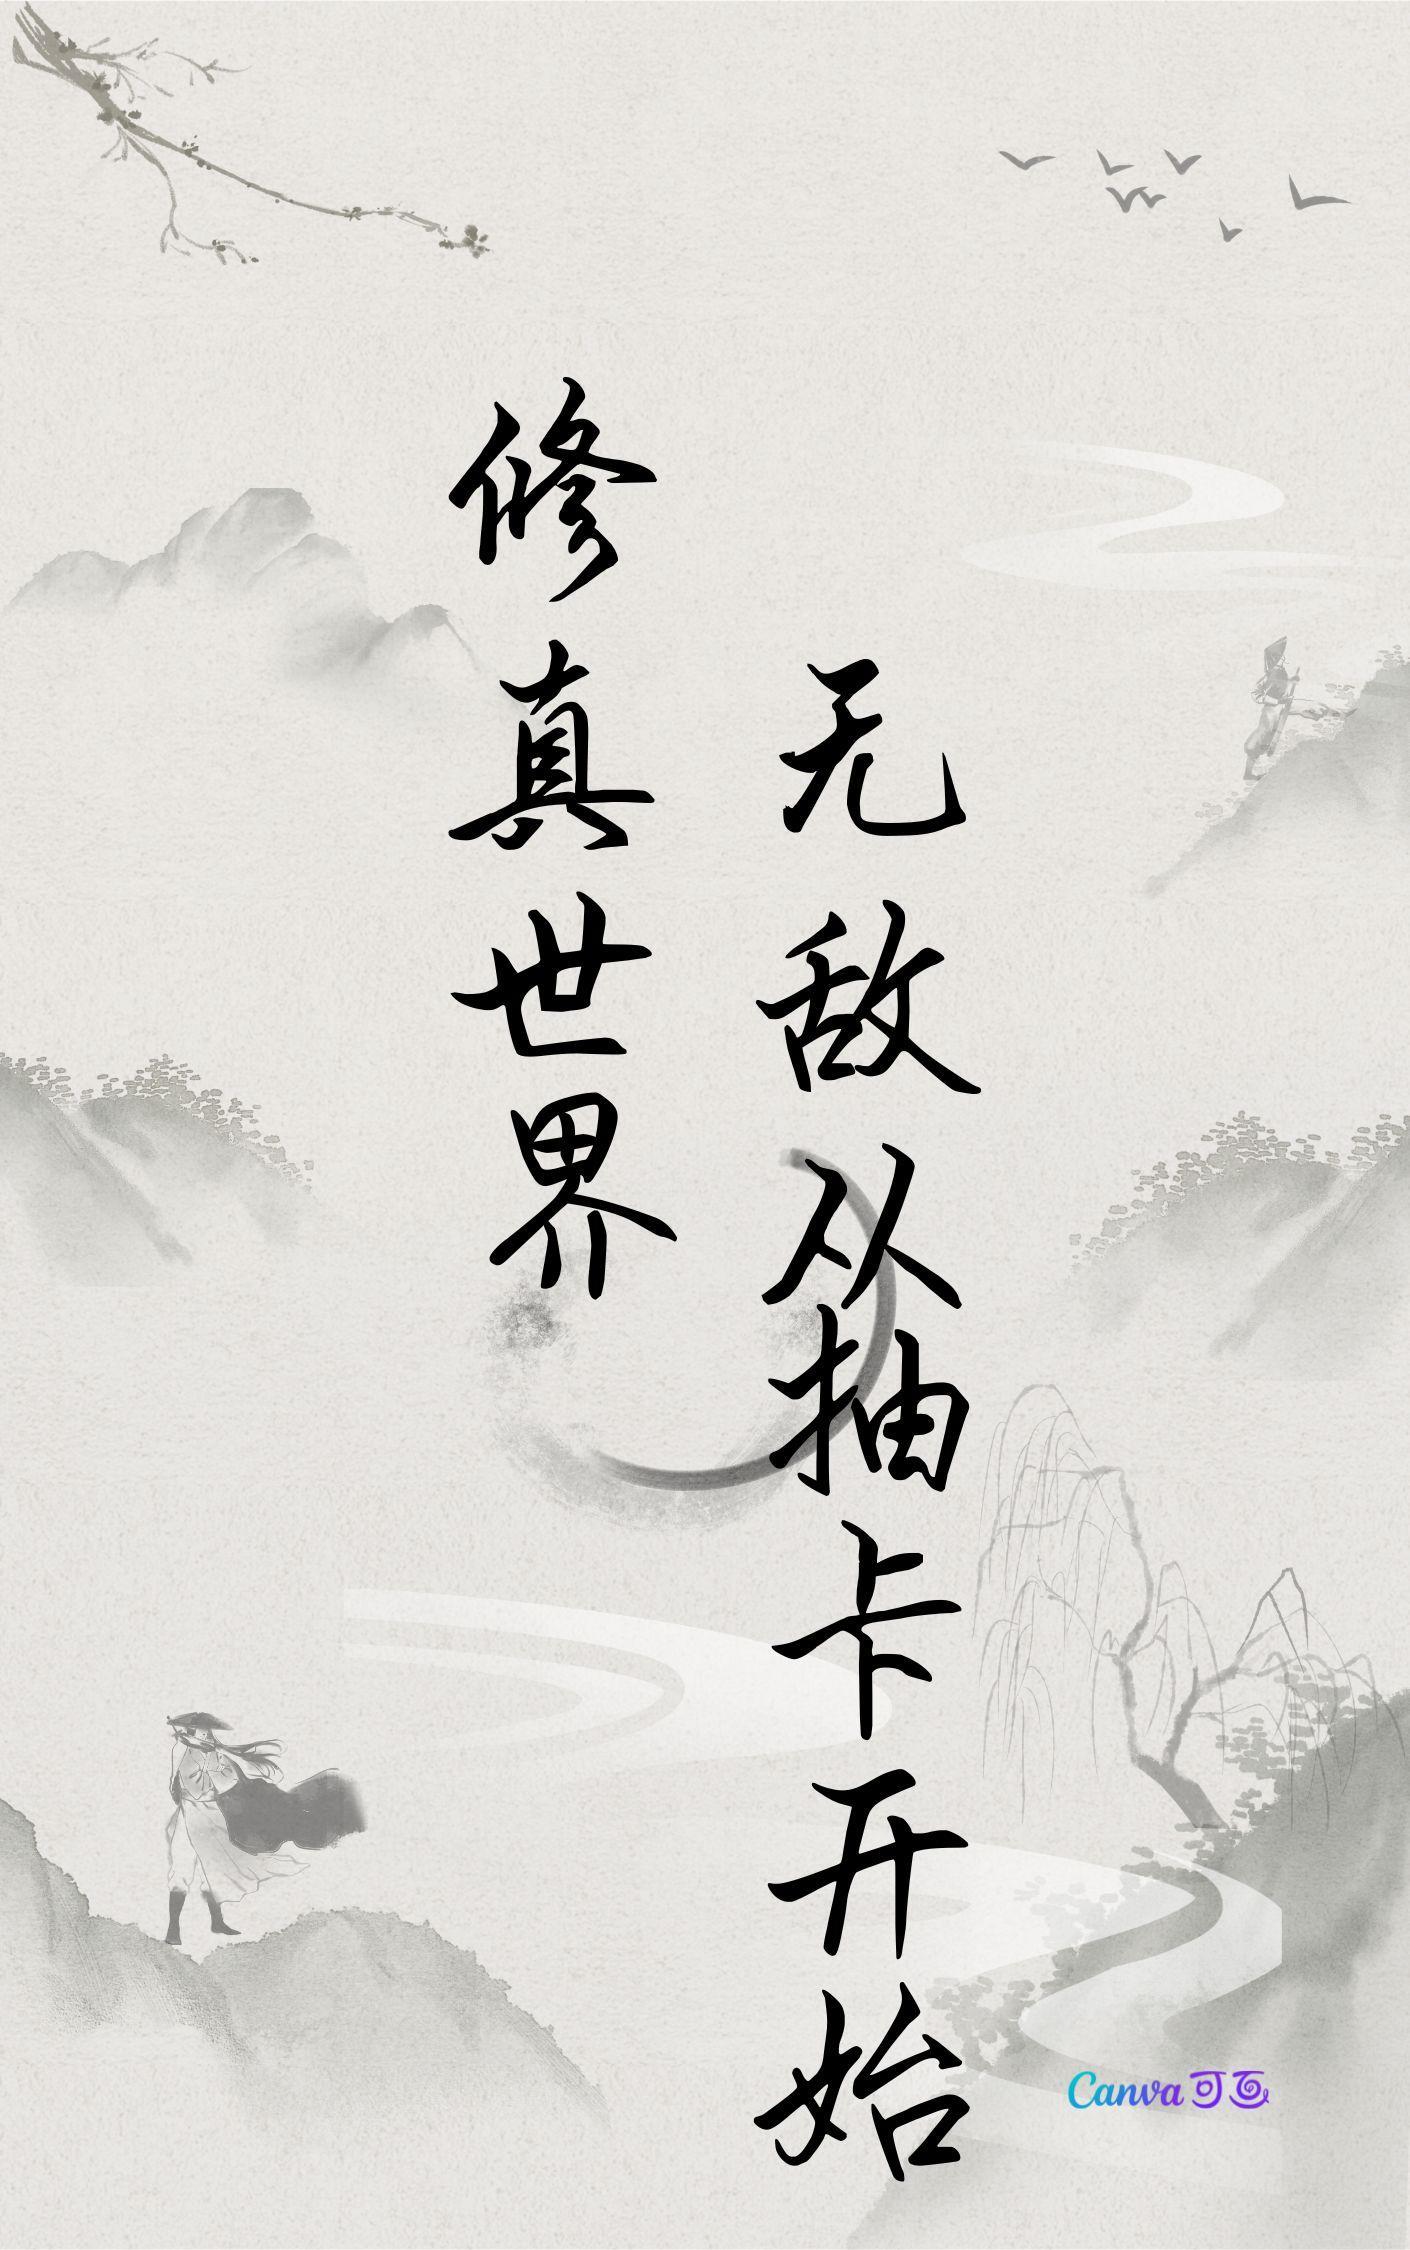 修真世界
无敌从抽卡开始
Canva可画